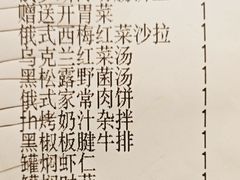 赠送开胃菜 1
俄式西梅红菜沙拉 1
乌克兰红菜汤 1
黑松露野菌汤 1
俄式家常肉饼 1
th烤奶汁杂拌 1
黑椒板腱牛排 1
罐焖虾仁 1